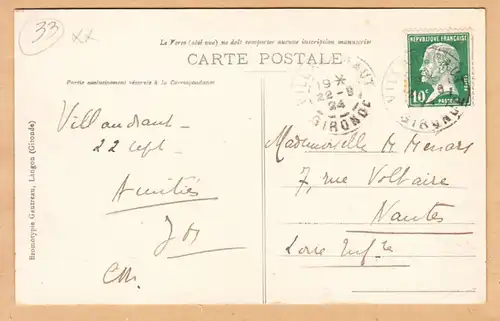 33
xx
Le Verso (côté vue) ne doit comporter aucune inscription manuscrite
CARTE POSTALE
Partie exclusivement réservée à la Correspondance
RÉPUBLIQUE FRANÇAISE
10c
POSTES
19 *
22-9
24
GIRONDE
GIRONDE
Villandraut
22 Sept
Amitiés
Mademoiselle M
7, rue Voltaire
Nantes
Loire Infre
Bromotypie Gautreau, Langon (Gironde)